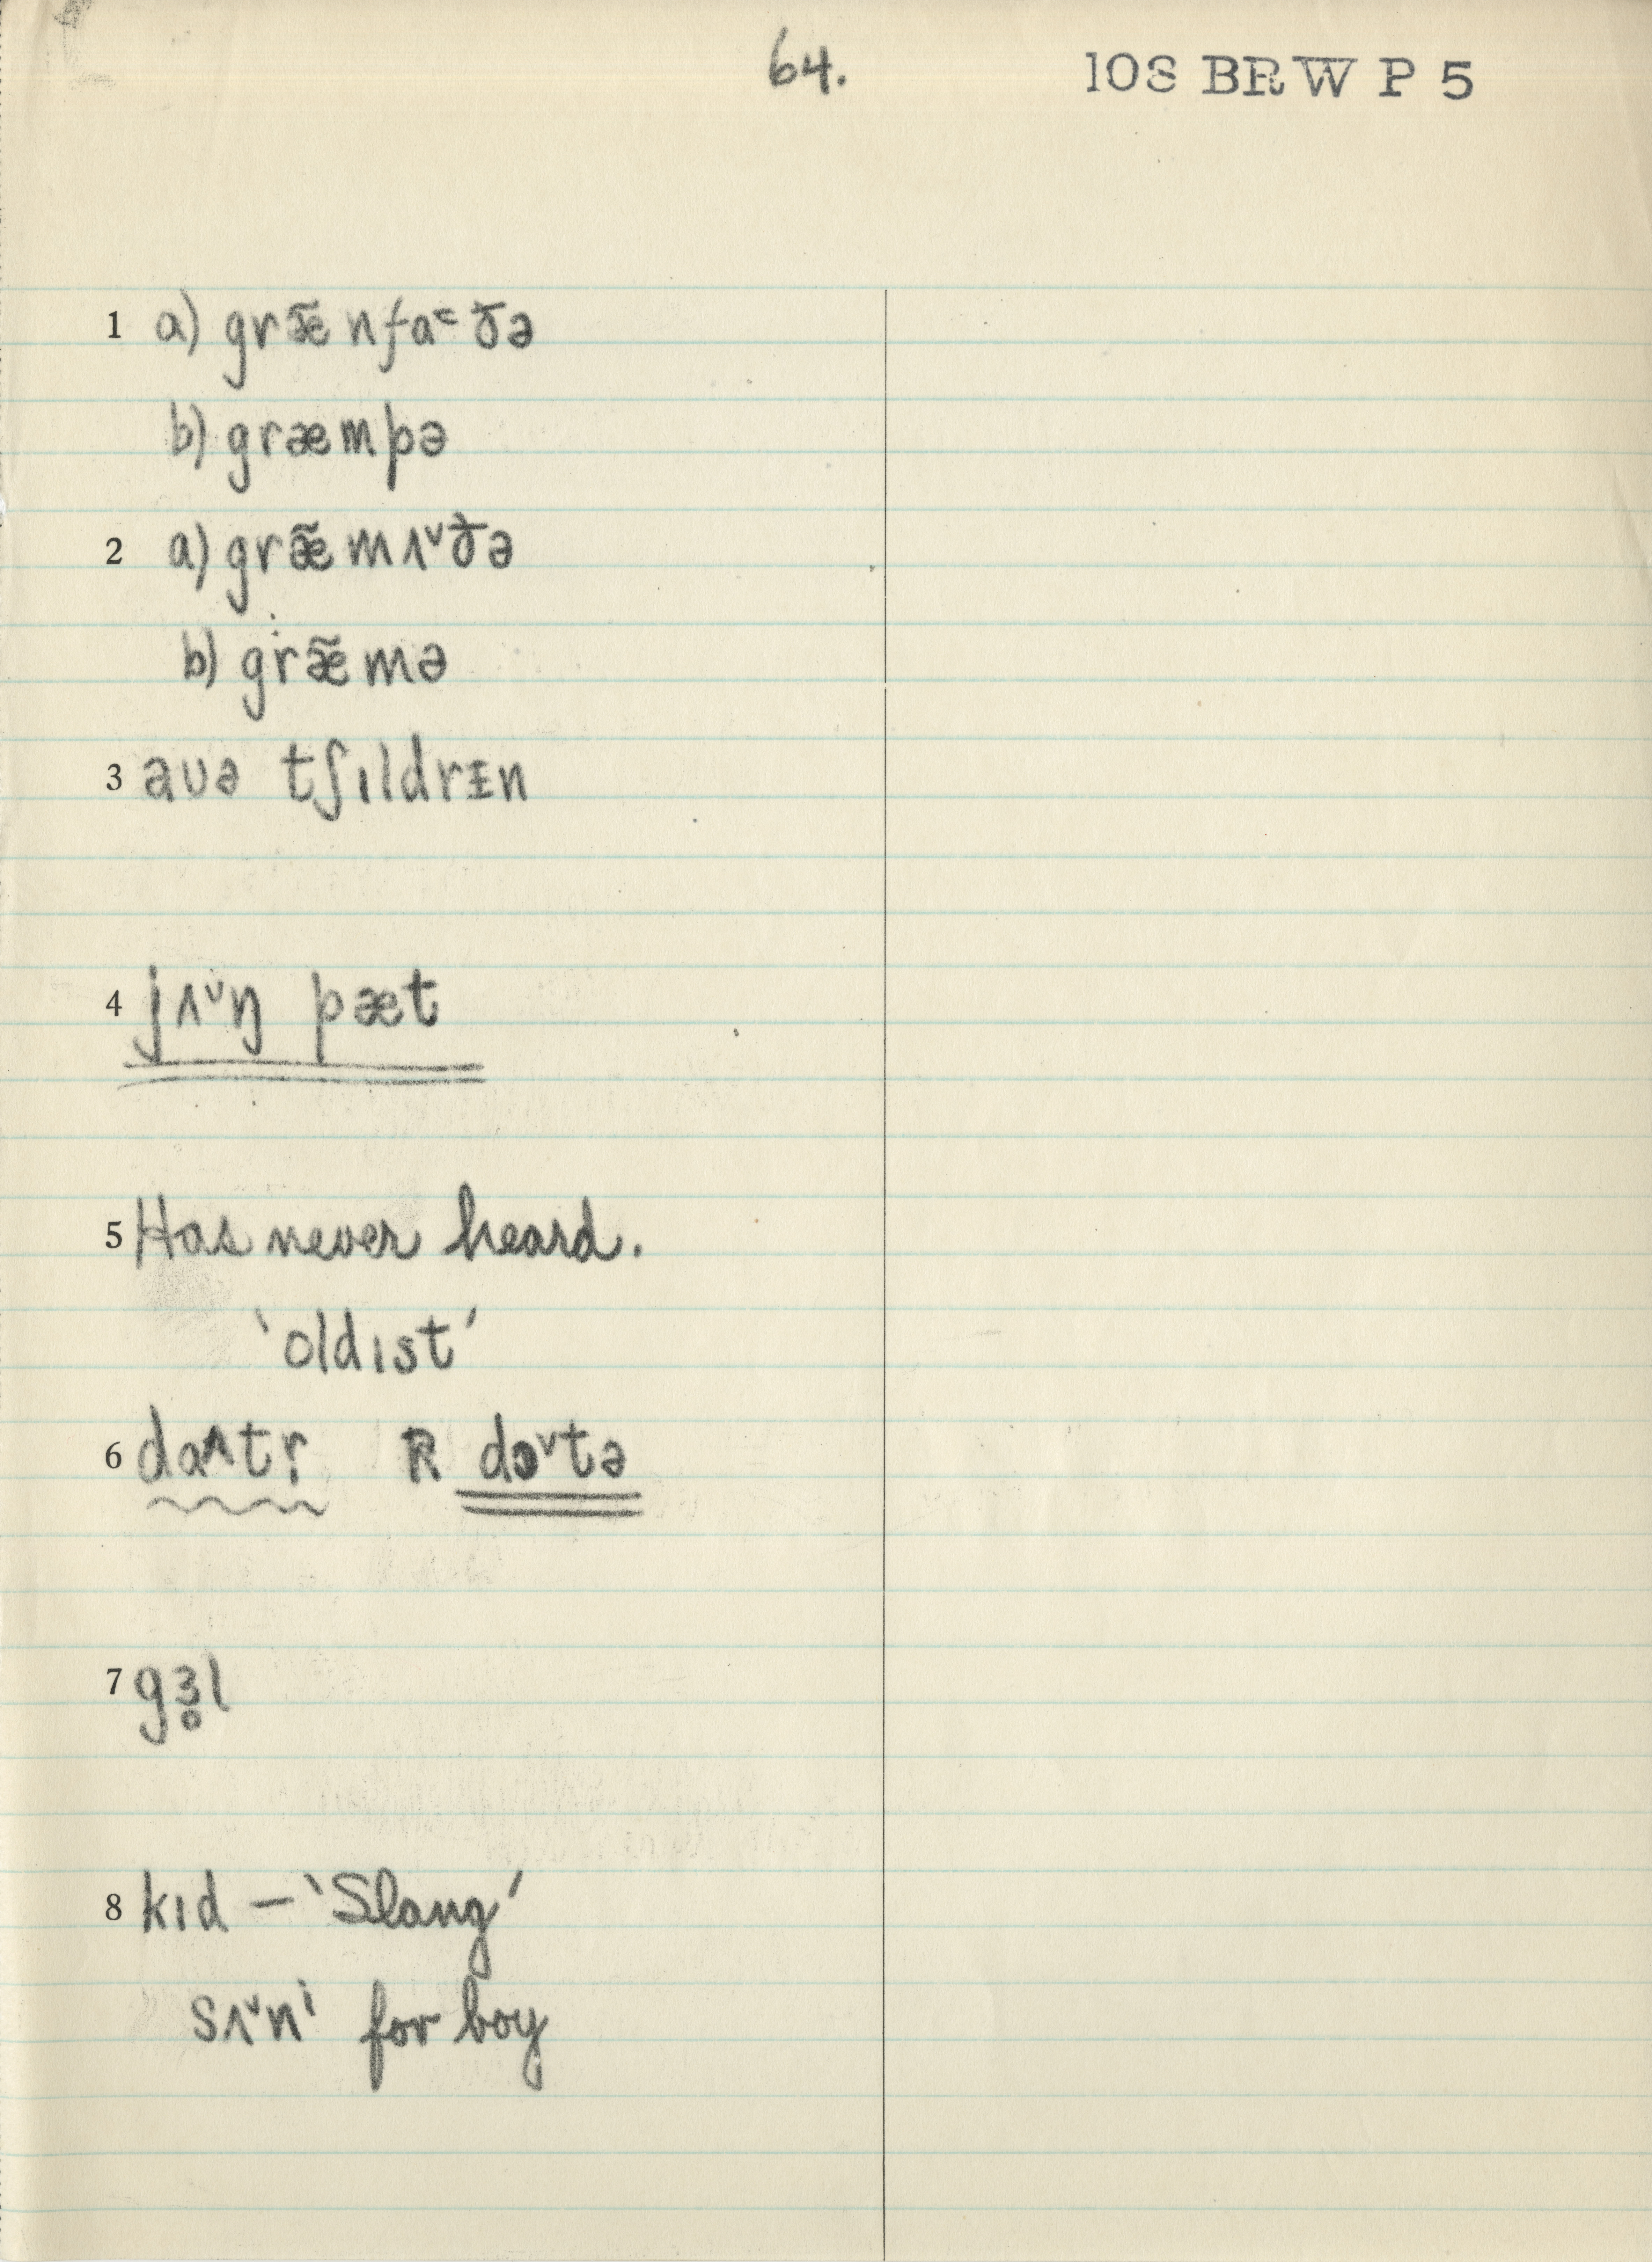 64. 108 BRW P 5
1 a) græ̃nfa˂ðə
b) græmpə
2 a) græ̃mʌ˅ðə
b) græ̃mə
3 aʊə tʃɪldrᵻn
4 jʌ˅ŋ pæt
5 Has never heard.
'oldɪst'
6 da˄tɽ R dɔ˅tə
7 gɜ̥l
8 kɪd – 'Slang'
sʌ˅nⁱ for boy